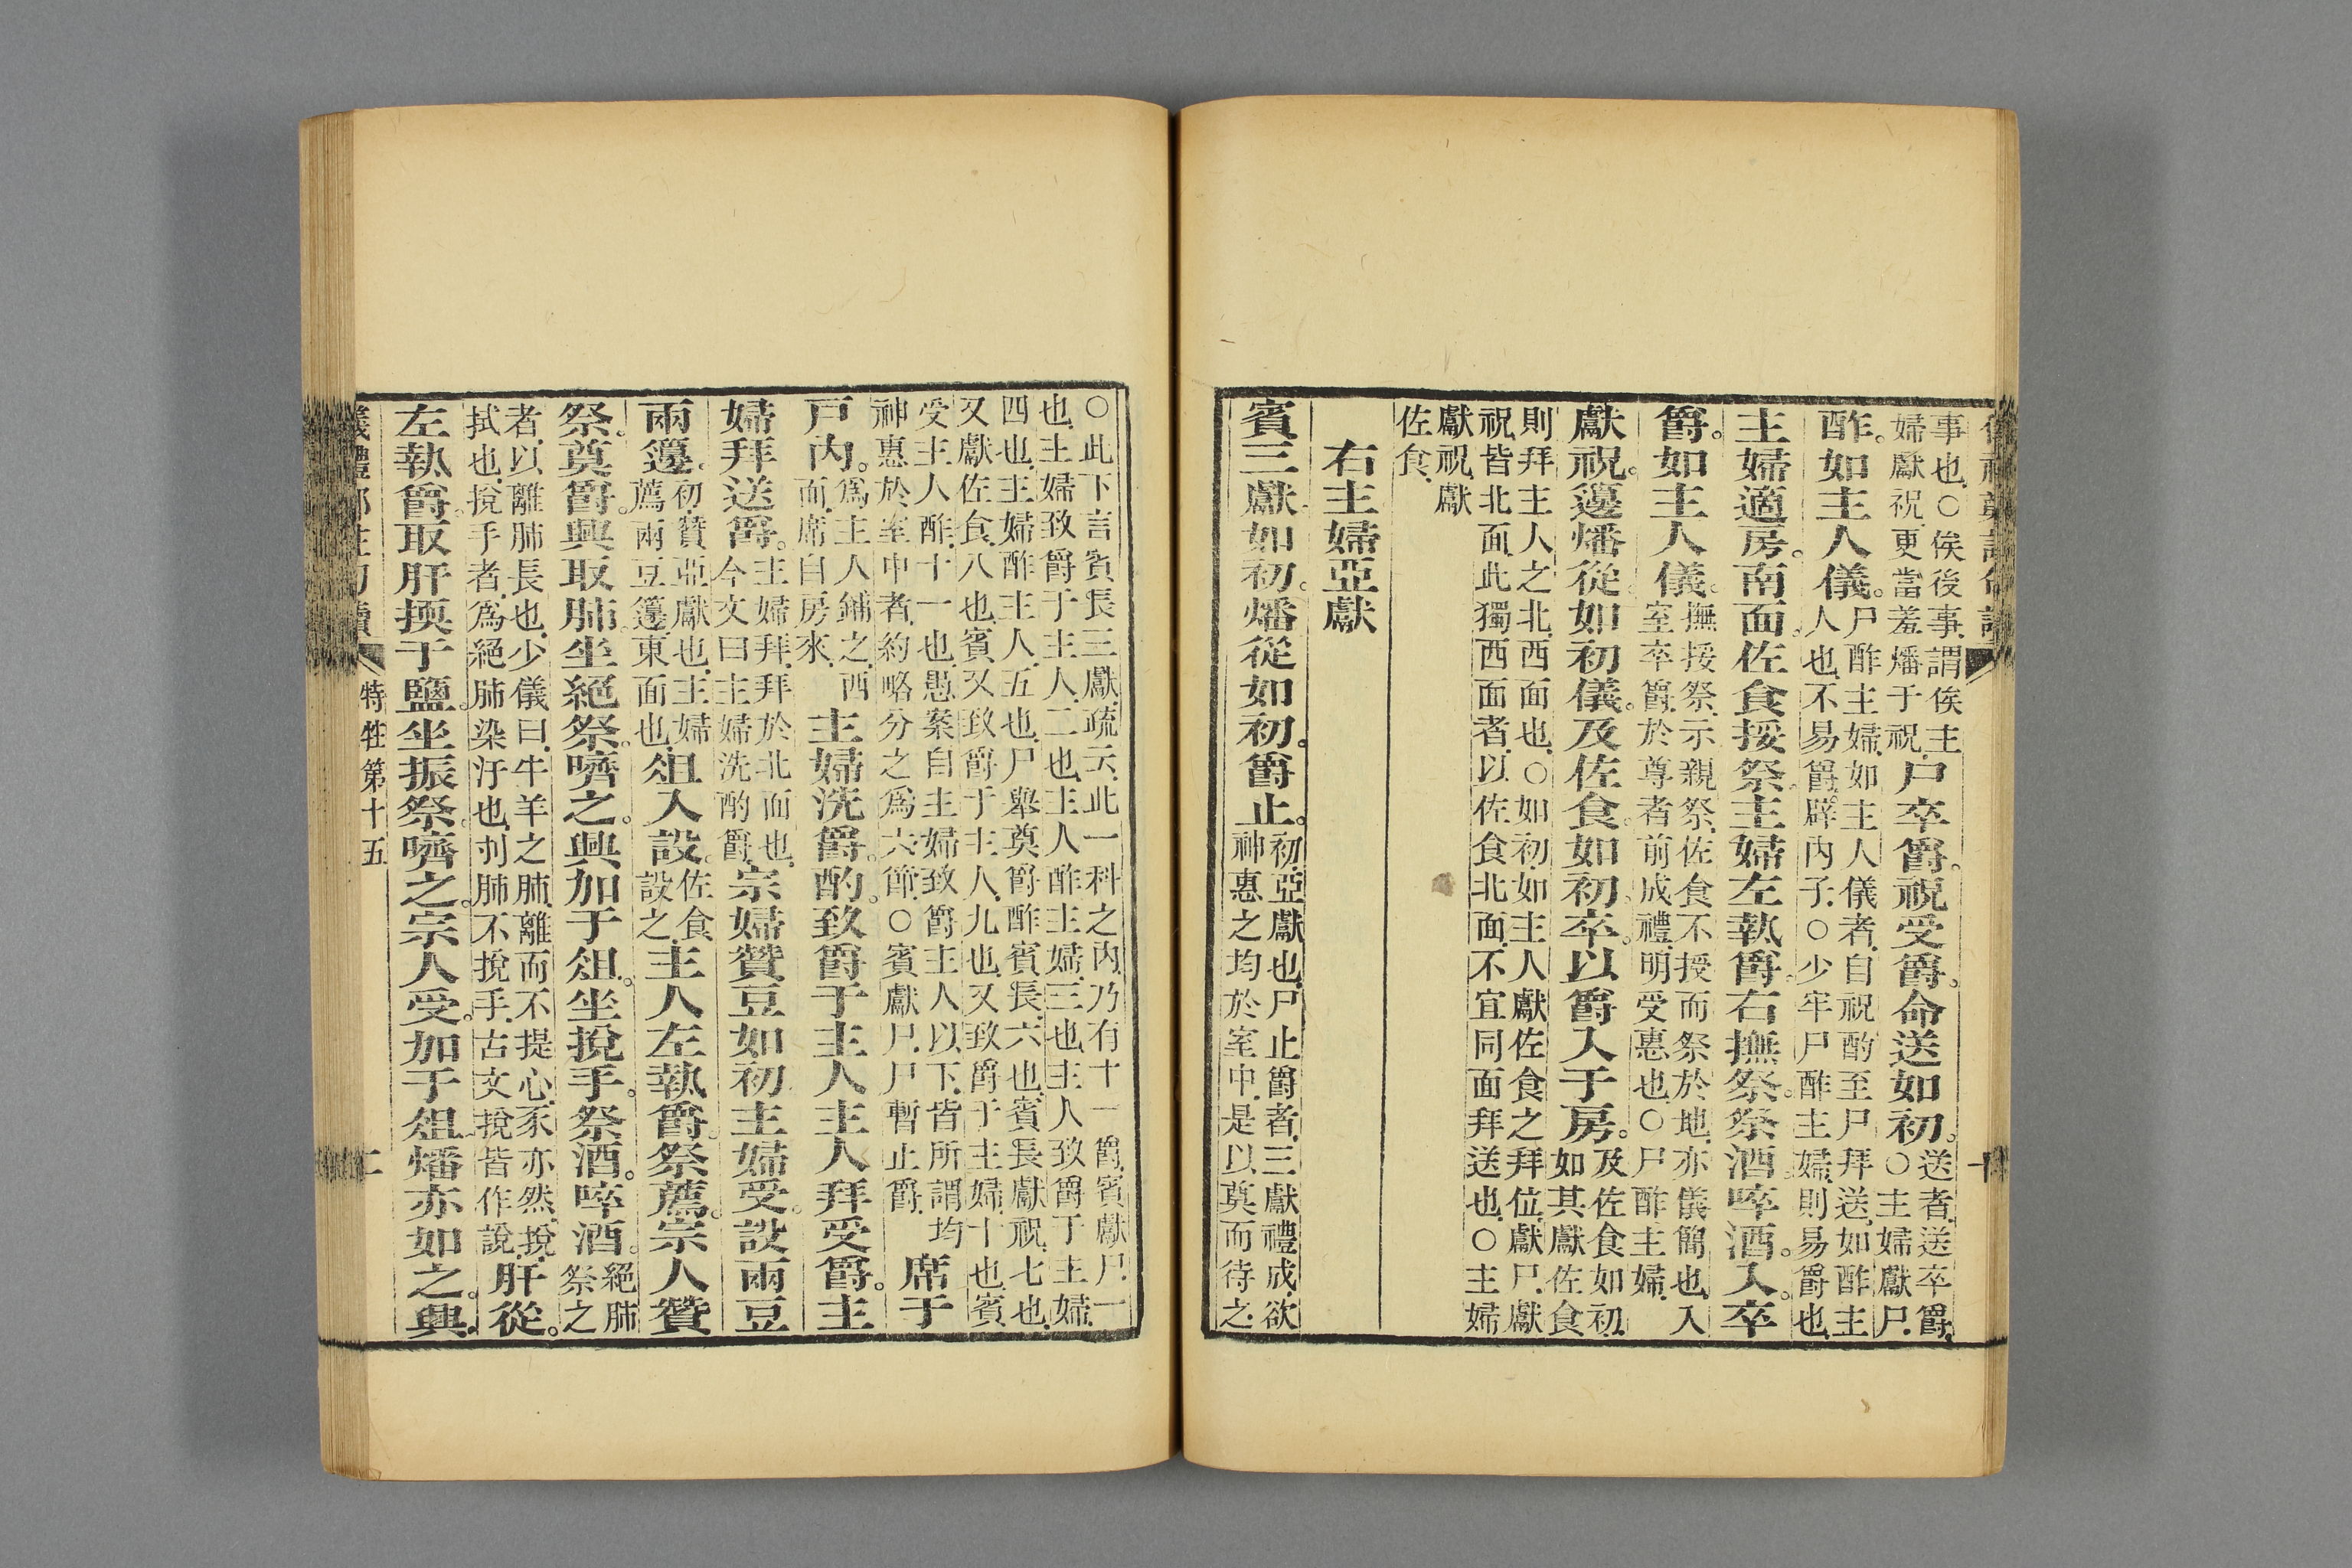 事也.○俟後事.謂俟主
婦獻祝.更當羞燔于祝.
尸卒爵。祝受爵。命送如初。
送者.送卒爵.
○主婦獻尸.
酢。如主人儀。
尸酢主婦.如主人儀者.自祝酌至尸拜送.如酢主
人也.不易爵.辟內子.○少牢尸酢主婦.則易爵也.
主婦適房。南面。佐食挼祭。主婦左執爵。右撫祭。祭酒。啐酒。入。卒
爵。如主人儀。
撫挼祭.示親祭.佐食不授而祭於地.亦儀簡也.入
室卒爵.於尊者前成禮.明受惠也.○尸酢主婦.
獻祝。籩燔從。如初儀。及佐食。如初。卒。以爵入于房。
及佐食如初.
如其獻佐食
則拜主人之北.西面也.○如初.如主人獻佐食之拜位.獻尸.獻
祝皆北面.此獨西面者.以佐食北面.不宜同面拜送也.○主婦
獻祝.獻
佐食.
右主婦亞獻
賓三獻如初。燔從如初。爵止。
初.亞獻也.尸止爵者.三獻禮成.欲
神惠之均於室中.是以奠而待之.
○此下言賓長三獻.疏云.此一科之內.乃有十一爵.賓獻尸.一
也.主婦致爵于主人.二也.主人酢主婦.三也.主人致爵于主婦.
四也.主婦酢主人.五也.尸舉奠爵酢賓長.六也.賓長獻祝.七也.
又獻佐食.八也.賓又致爵于主人.九也.又致爵于主婦.十也.賓
受主人酢.十一也.愚案自主婦致爵主人以下.皆所謂均
神惠於室中者.約略分之爲六節.○賓獻尸.尸暫止爵.
席于
戶內。
爲主人鋪之.西
面.席自房來.
主婦洗爵。酌。致爵于主人。主人拜受爵。主
婦拜送爵。
主婦拜.拜於北面也.
今文曰.主婦洗酌爵.
宗婦贊豆如初。主婦受。設兩豆
兩籩。
初.贊亞獻也.主婦
薦兩豆籩.東面也.
俎入設。
佐食
設之.
主人左執爵。祭薦。宗人贊
祭。奠爵。興取肺。坐絕祭。嚌之。興加于俎。坐挩手。祭酒。啐酒。
絕肺
祭之
者.以離肺長也.少儀曰.牛羊之肺.離而不提心.豕亦然.挩.
拭也.挩手者.爲絕肺染汙也.刌肺不挩手.古文挩皆作說.
肝從。
左執爵。取肝擩于鹽。坐振祭。嚌之。宗人受。加于俎。燔亦如之。興.
特牲第十五